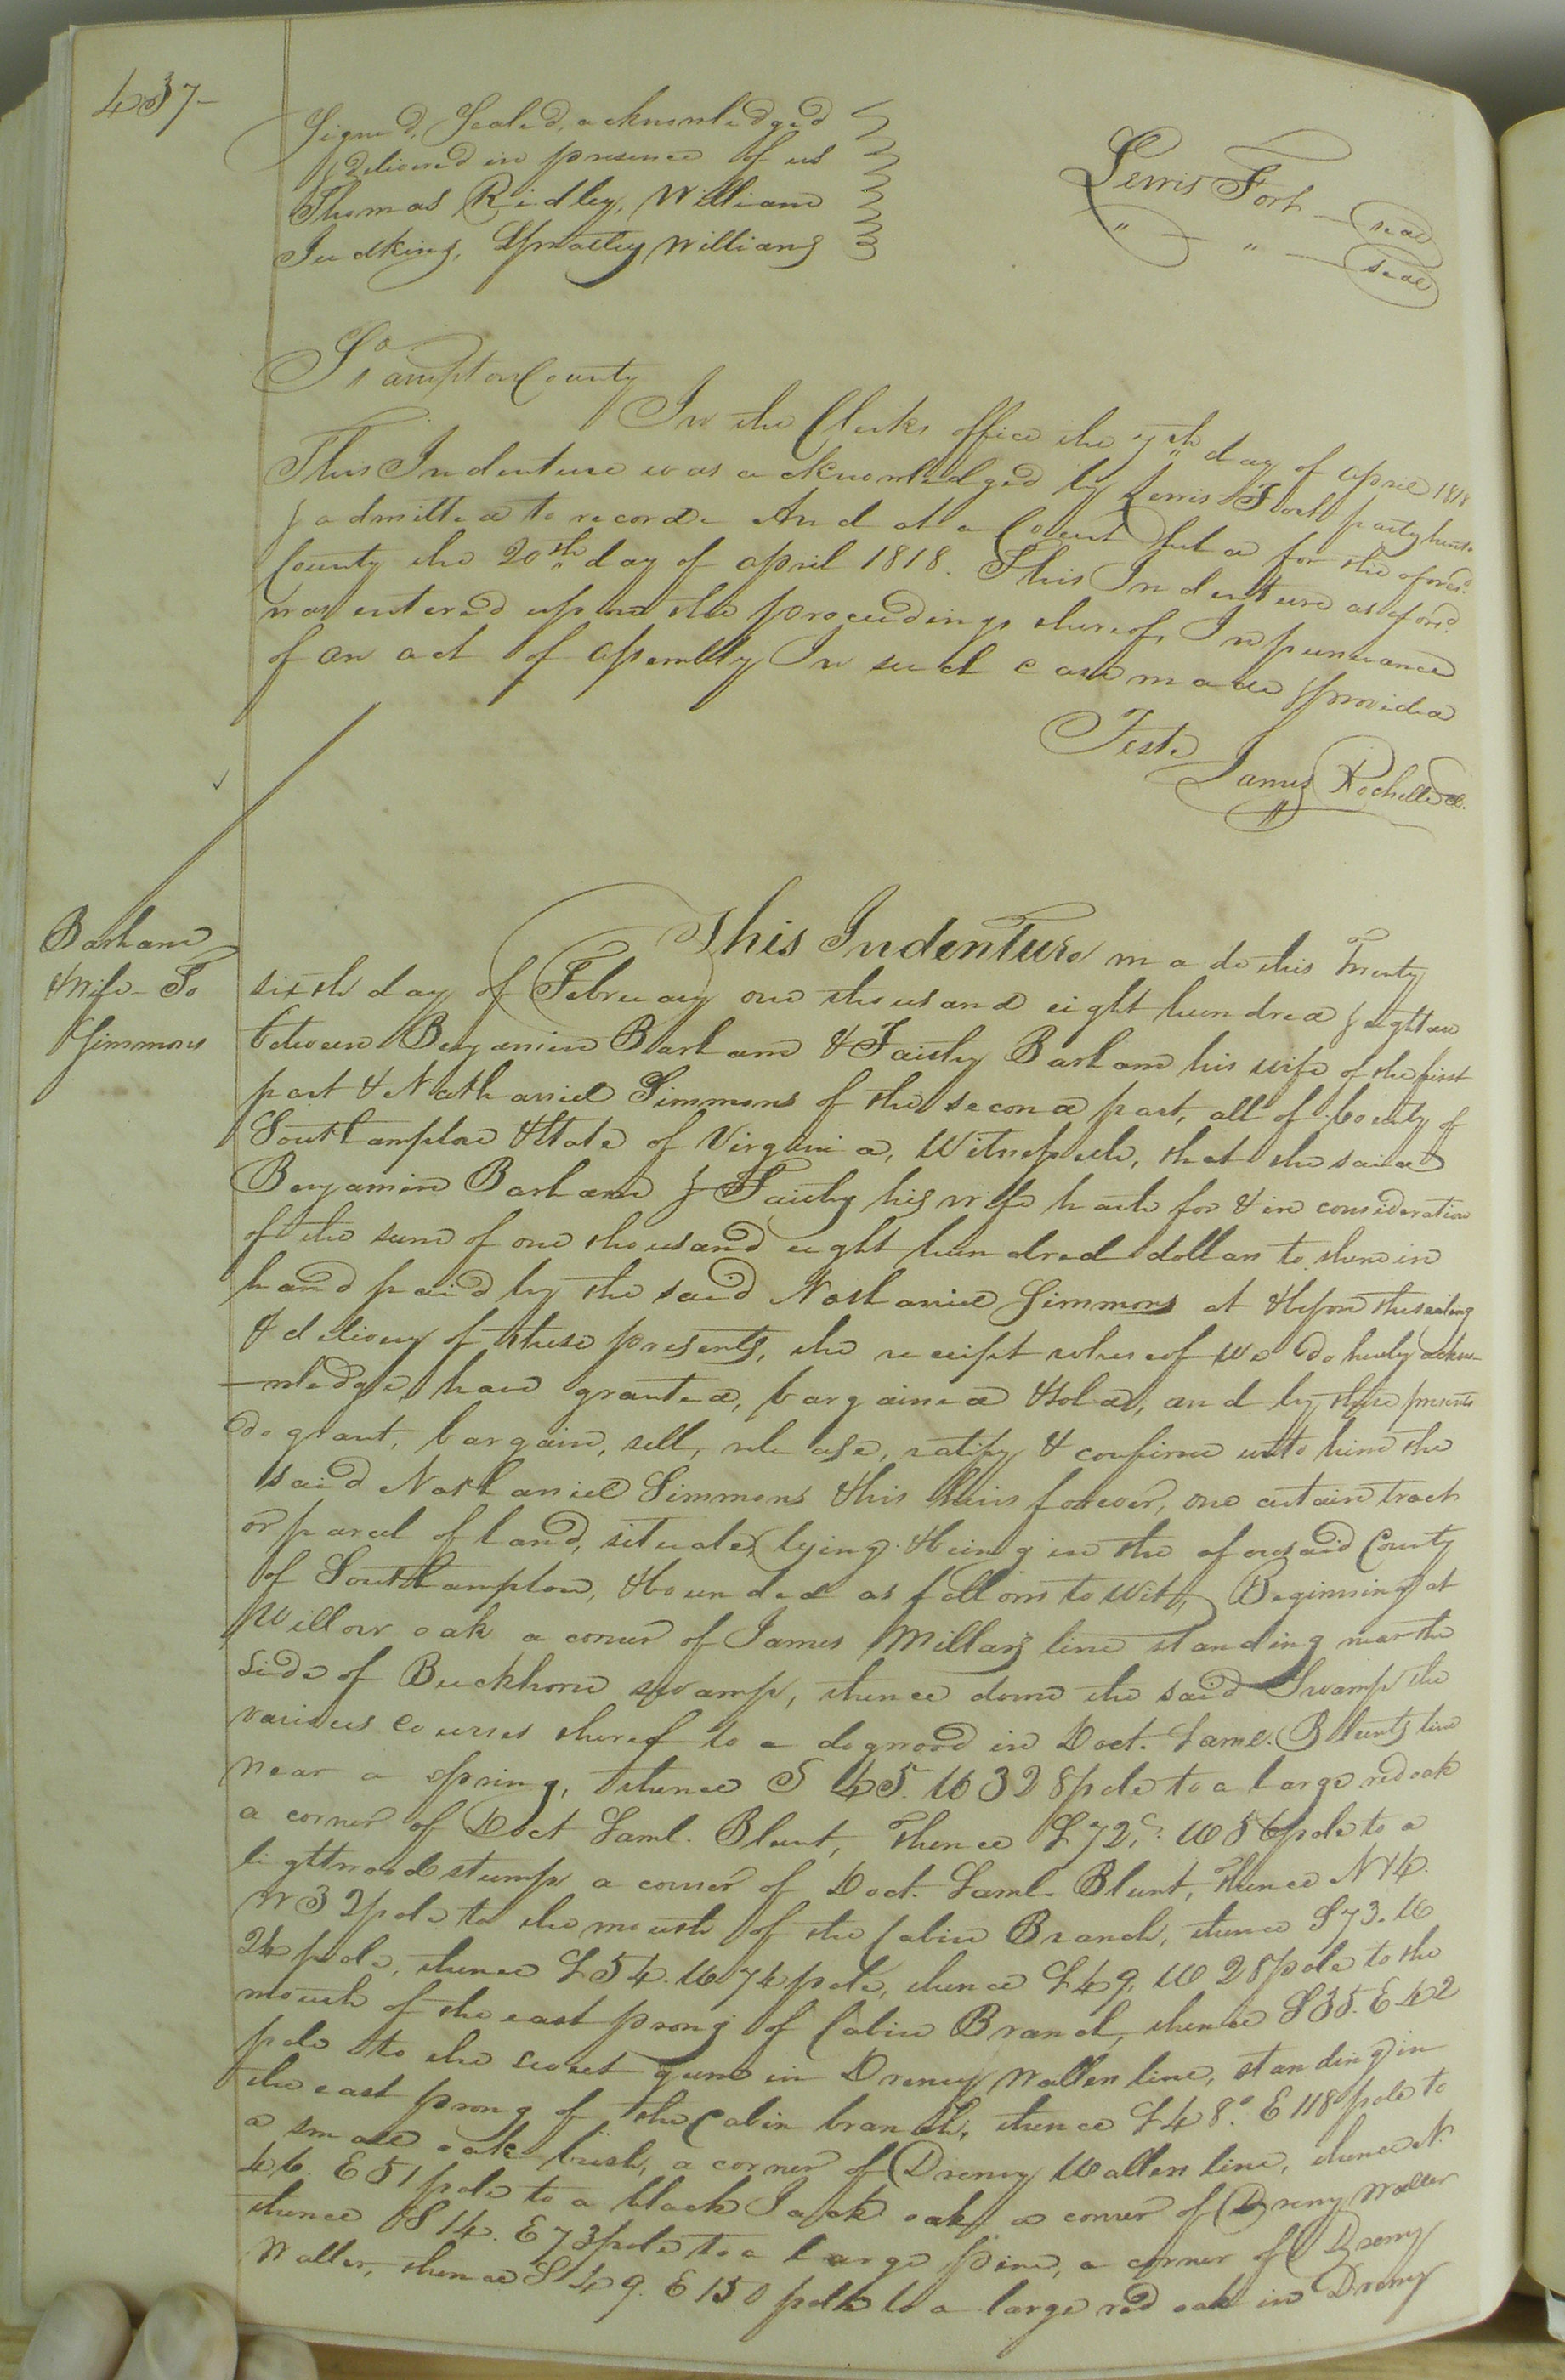 437-
Signed, Sealed, acknowledged
& delivered in presence of us
Thomas Ridley, William
Judkins, Spratley Williams
Lewis Fort seal
" " seal
So ampton County
In the Clerks office the 7th day of april 1818
This Indenture was acknowledged by Lewis Fort party hereto
& admitted to record And at a Court held for the aforesd.
County the 20th day of april 1818. This Indenture as aforsd.
was entered upon the proceedings thereof, In pursuance
of an act of assembly In such case made & provided
Teste
James Rochelle cc.
Barham
& Wife To
Simmons
This Indenture made this Twenty
sixth day of February one thousand eight hundred & eighteen
between Benjamin Barham & Faithy Barham his wife of the first
part & Nathaniel Simmons of the second part, all of County of
Southampton & State of Virginia, Witnesseth, that the said
Benjamin Barham & Faithy his wife hath for & in consideration
of the sum of one thousand eight hundred dollars to them in
hand paid by the said Nathaniel Simmons at & before the sealing
& delivery of these presents, the receipt whereof we do hereby ackno-
-wledge, have granted, bargained & sold, and by these presents
do grant, bargain, sell, release, ratify & confirm unto him the
said Nathaniel Simmons & his heirs forever, one certain tract
or parcel of land, situate, lying & being in the aforesaid County
of Southampton, & bounded as follows to wit, Beginning at
Willow oak a corner of James Millars line standing near the
side of Buckhorn swamp, thence down the said Swamp the
various courses thereof to a dogwood in Doct. Saml. Blunts line
near a spring, thence S 45. W 328 pole to a large red oak
a corner of Doct Saml. Blunt, Thence S 72.° W 56 pole to a
lightwood stump a corner of Doct. Saml. Blunt, Thence N 14.
W 32 pole to the mouth of the Cabin Branch, thence S 73. W
24 pole, thence S 54. W 74 pole, thence S 49. W 28 pole to the
mouth of the east prong of Cabin Branch, thence S 35. E 42
pole to the sweet gum in Drewry Wallers line, standing in
the east prong of the Cabin branch, thence S 48.° E 118 pole to
a small oak bush, a corner of Drewry Wallers line, thence N.
46. E 51 pole to a black Jack oak a corner of Drewry Waller
thence S 14. E 73 pole to a large pine, a corner of Drewry
Waller, thence S 49. E 150 pole to a large red oak in Drewry